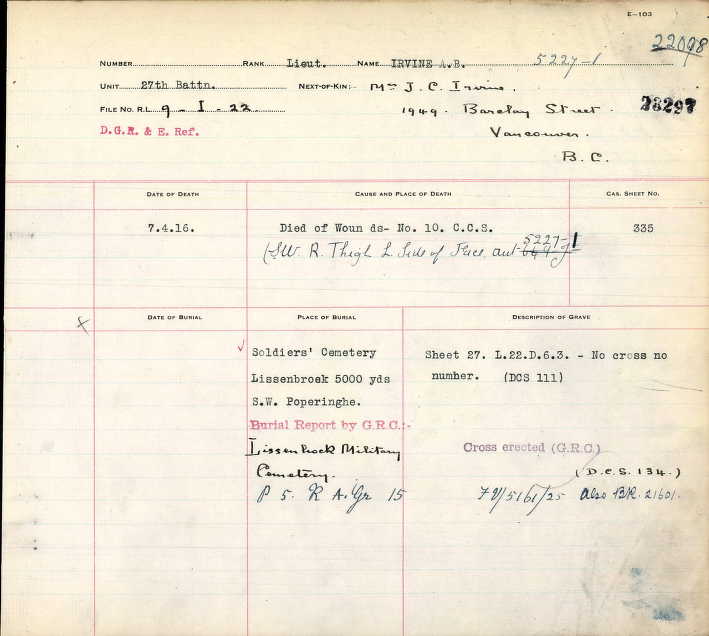 E—103
22098
NUMBER RANK Lieut. NAME IRVINE A.B. 5227-1
UNIT 27th Battn. NEXT-OF-KIN:- Mrs J. C. Irvine.
FILE NO. R.L. 9 - I - 22 1949. Barclay Street. 28297
D.G.R. & E. Ref. Vancouver.
B.C.
DATE OF DEATH CAUSE AND PLACE OF DEATH CAS. SHEET NO.
7.4.16. Died of Woun ds- No. 10. C.C.S. 335
(SW. R. Thigh L. Side of Face, 5227-1
DATE OF BURIAL PLACE OF BURIAL DESCRIPTION OF GRAVE
x
✓ Soldiers' Cemetery Sheet 27. L.22.D.6.3. - No cross no
Lissenbroek 5000 yds number. (DCS 111)
S.W. Poperinghe.
Burial Report by G.R.C.:-
Lissenhoek Military Cross erected (G.R.C.)
Cemetery. (D.C.S. 134.)
P 5. R A. Gr 15 also BR. 21601.